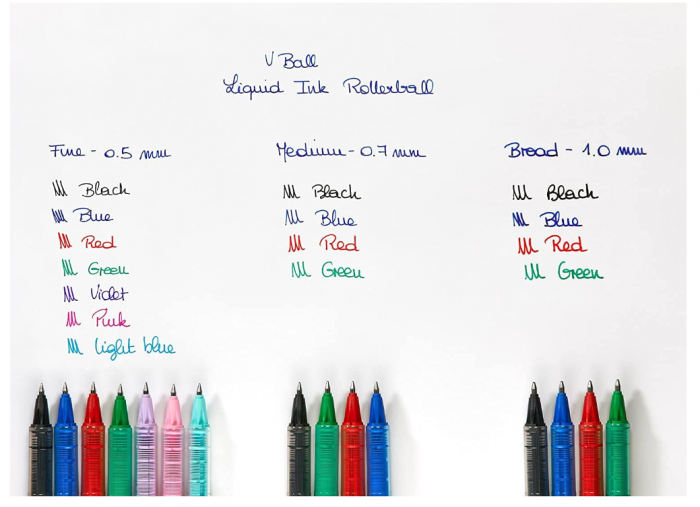 V Ball
Liquid Ink Rollerball
Fine - 0.5 mm
Black
Blue
Red
Green
Violet
Pink
light blue
Medium - 0.7 mm
Black
Blue
Red
Green
Broad - 1.0 mm
Black
Blue
Red
Green